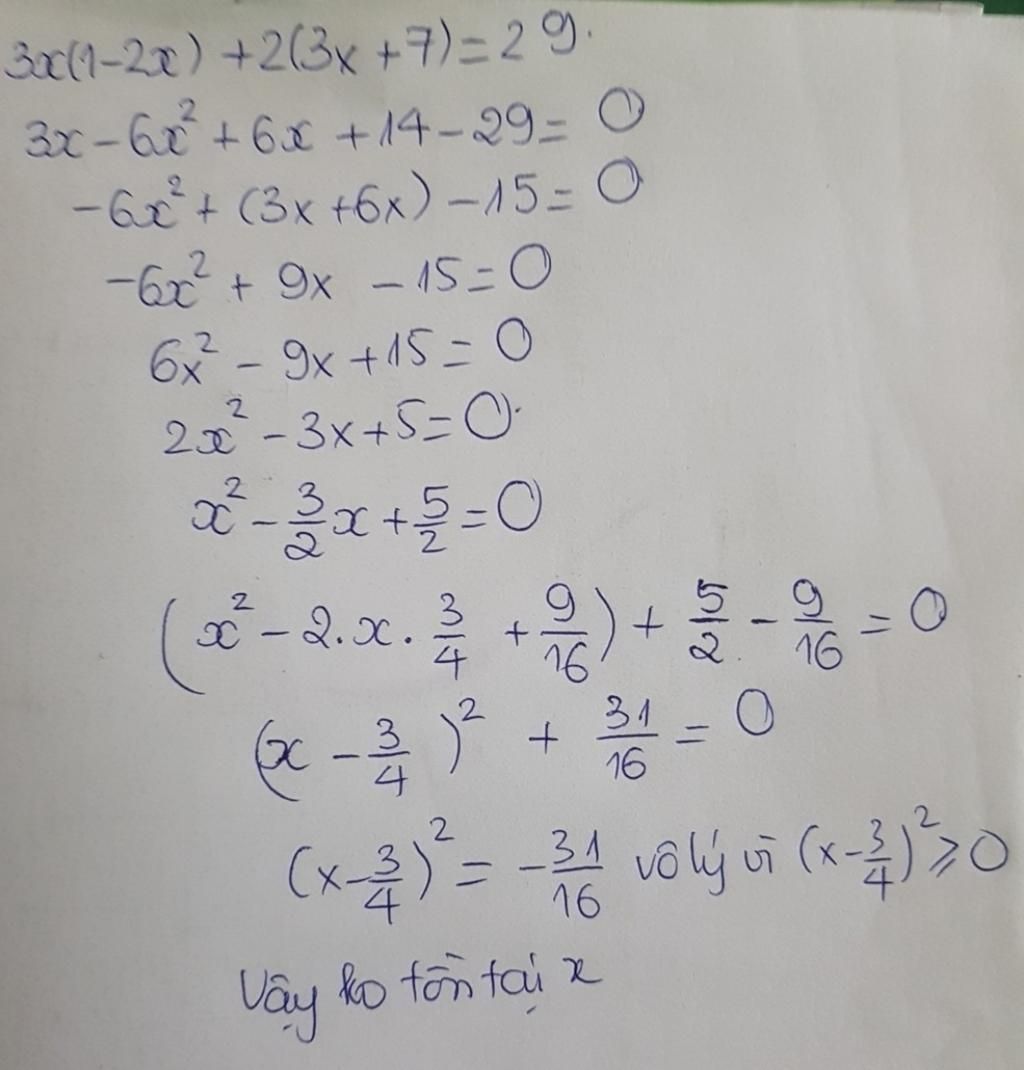 3x(1-2x) + 2(3x + 7) = 29.
3x - 6x² + 6x + 14 - 29 = 0
-6x² + (3x + 6x) - 15 = 0
-6x² + 9x - 15 = 0
6x² - 9x + 15 = 0
2x² - 3x + 5 = 0.
x² - 3/2 x + 5/2 = 0
(x² - 2.x. 3/4 + 9/16) + 5/2 - 9/16 = 0
(x - 3/4)² + 31/16 = 0
(x - 3/4)² = -31/16 vô lý vì (x - 3/4)² ≥ 0
Vậy ko tồn tại x